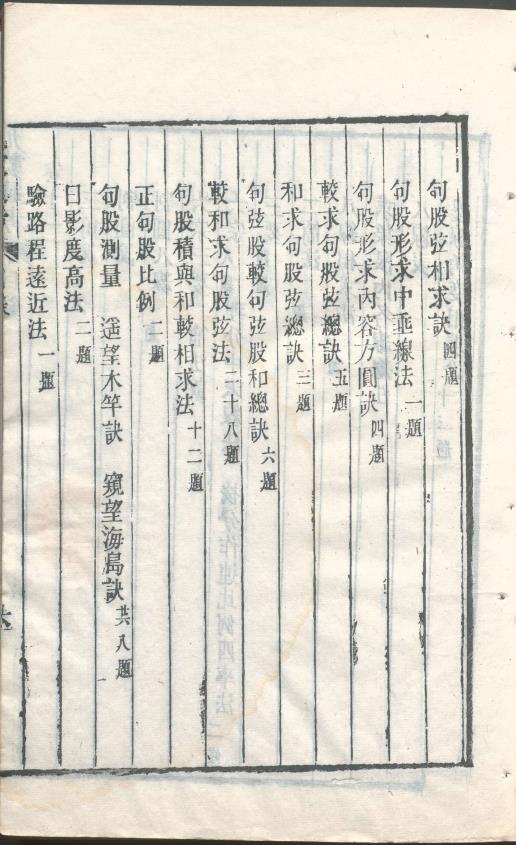 句股弦相求訣四題
句股形求中垂線法一題
句股形求內容方圓訣四題
較求句股弦總訣五題
和求句股弦總訣三題
句弦股較句弦股和總訣六題
較和求句股弦法二十八題
句股積與和較相求法十二題
正句股比例二題
句股測量 遥望木竿訣 窺望海島訣共八題
日影度高法二題
驗路程遠近法一題